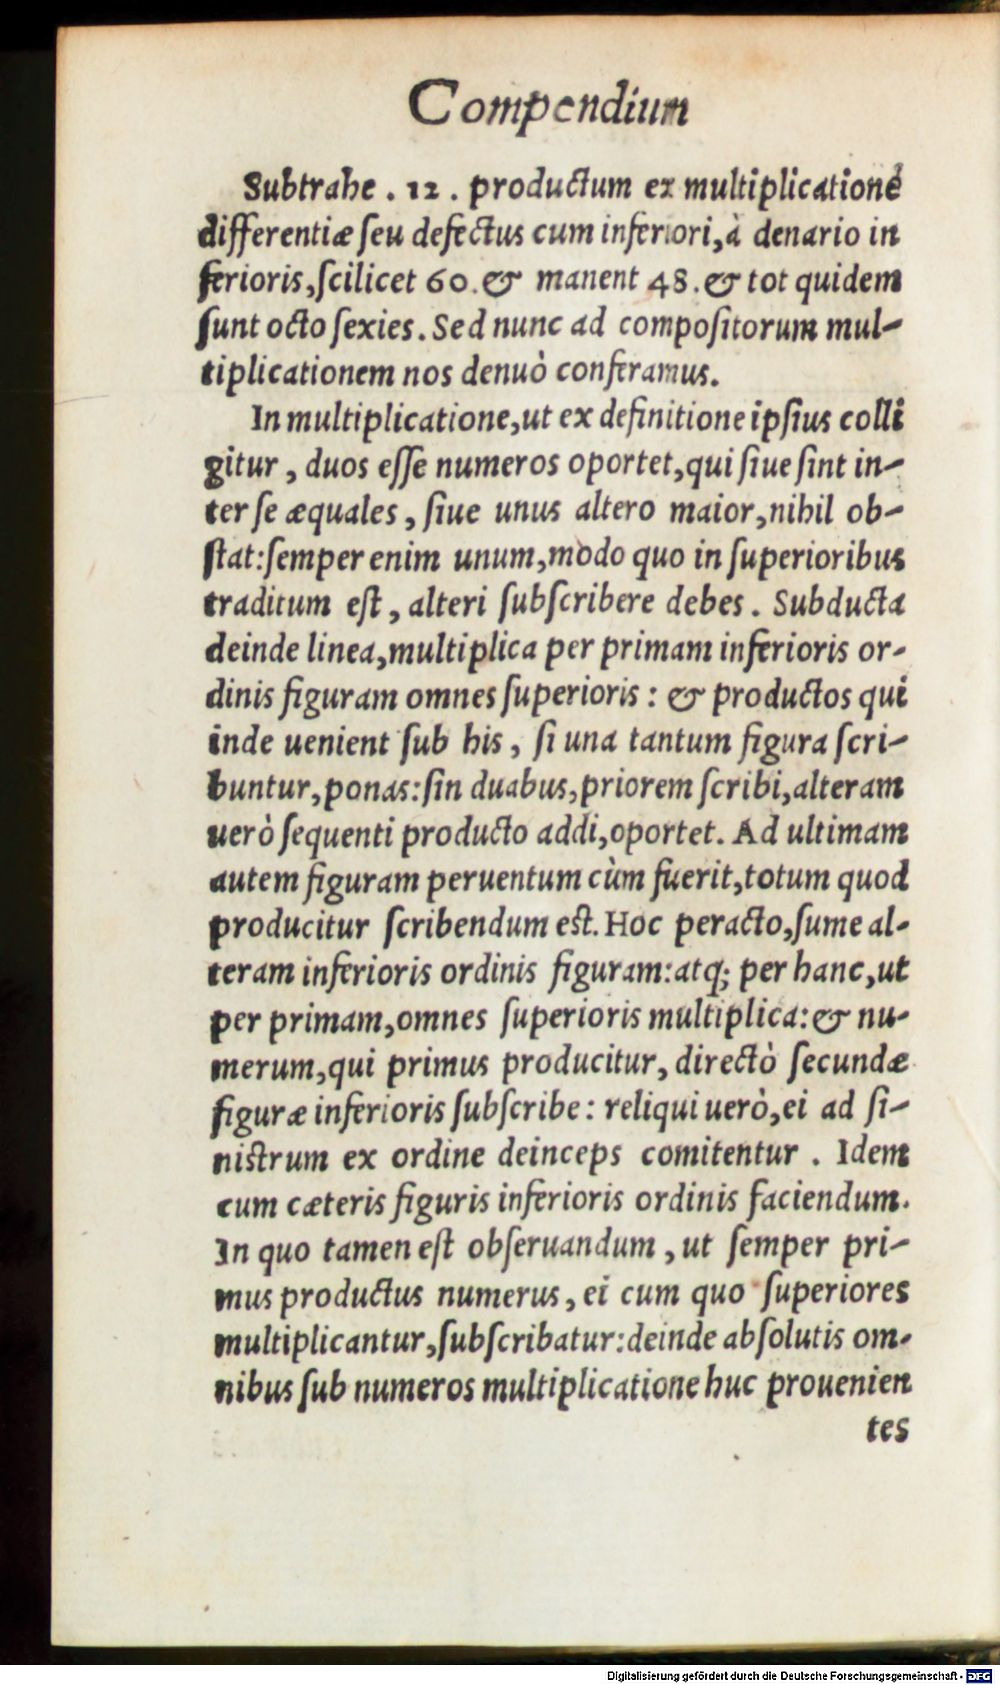 Compendium
Subtrahe . 12 . productum ex multiplicatione
differentiæ ſeu defectus cum inferiori, à denario in
ferioris, ſcilicet 60. & manent 48. & tot quidem
ſunt octo ſexies. Sed nunc ad compoſitorum mul-
tiplicationem nos denuò conferamus.
In multiplicatione, ut ex definitione ipſius colli
gitur, duos eſſe numeros oportet, qui ſiue ſint in-
ter ſe æquales, ſiue unus altero maior, nihil ob-
ſtat: ſemper enim unum, modo quo in ſuperioribus
traditum eſt, alteri ſubſcribere debes. Subducta
deinde linea, multiplica per primam inferioris or-
dinis figuram omnes ſuperioris: & productos qui
inde uenient ſub his, ſi una tantum figura ſcri-
buntur, ponas: ſin duabus, priorem ſcribi, alteram
uerò ſequenti producto addi, oportet. Ad ultimam
autem figuram peruentum cùm fuerit, totum quod
producitur ſcribendum eſt. Hoc peracto, ſume al-
teram inferioris ordinis figuram: atq; per hanc, ut
per primam, omnes ſuperioris multiplica: & nu-
merum, qui primus producitur, directò ſecundæ
figuræ inferioris ſubſcribe: reliqui uerò, ei ad ſi-
niſtrum ex ordine deinceps comitentur . Idem
cum cæteris figuris inferioris ordinis faciendum.
In quo tamen eſt obſeruandum, ut ſemper pri-
mus productus numerus, ei cum quo ſuperiores
multiplicantur, ſubſcribatur: deinde abſolutis om-
nibus ſub numeros multiplicatione huc prouenien
tes
Digitalisierung gefördert durch die Deutsche Forschungsgemeinschaft - DFG